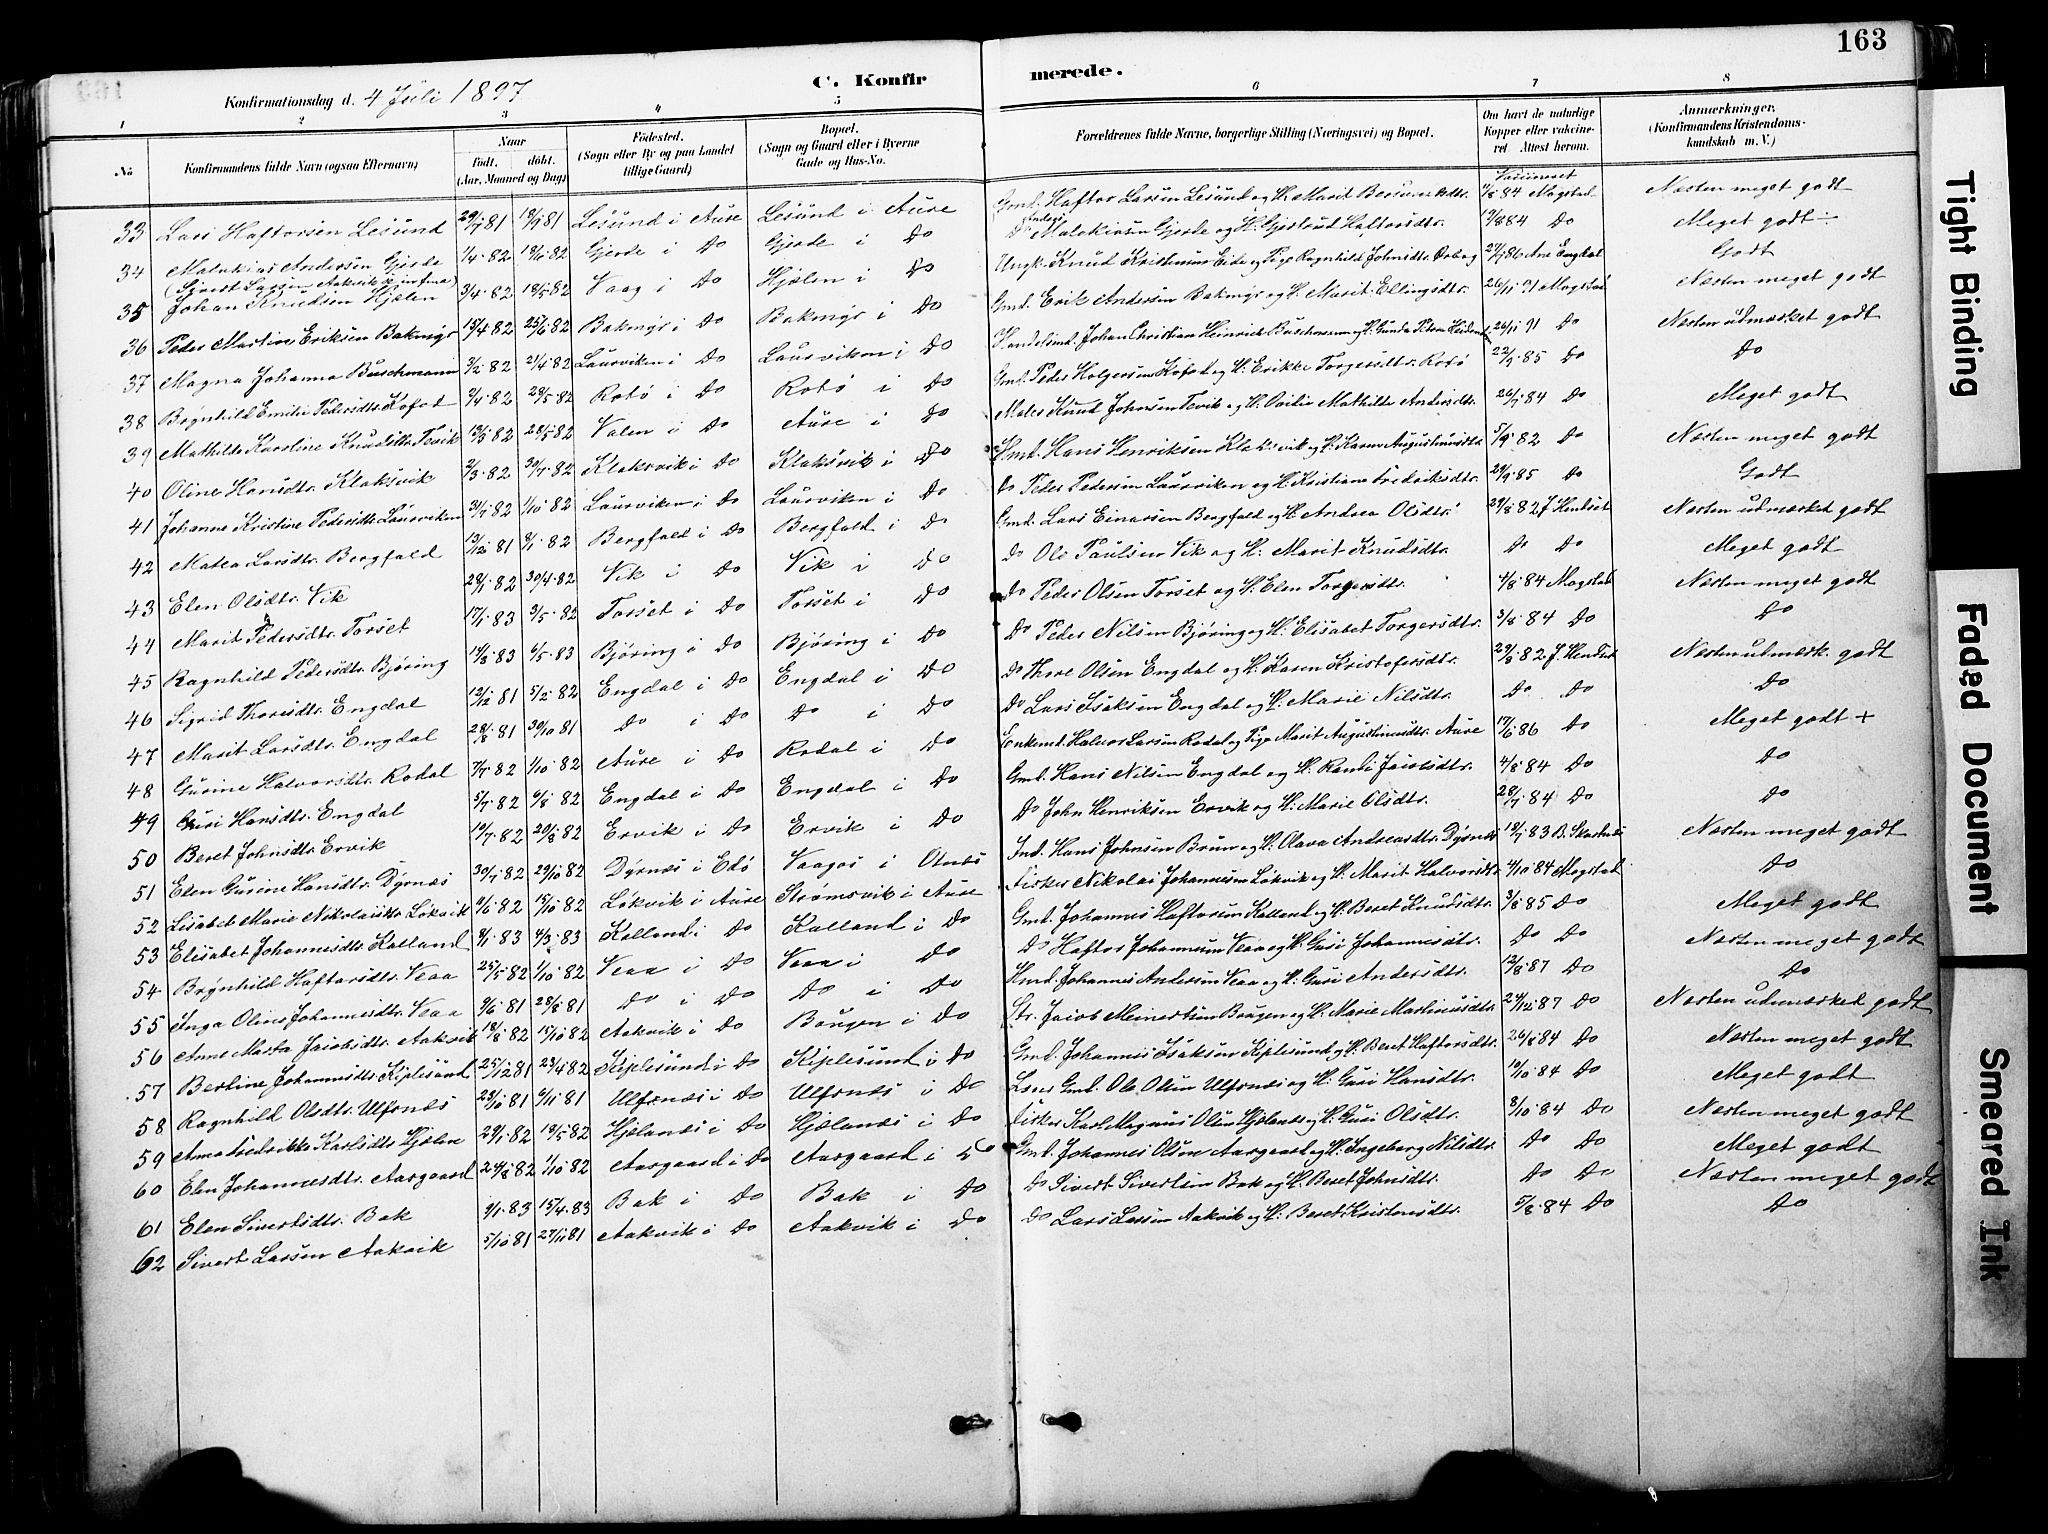 163
C. Konfirmerede.
Konfirmationsdag d. 4 Juli 1897
1 2 3 4 5 6 7 8
No
Konfirmandens fulde Navn (ogsaa Efternavn)
Naar
født. døbt.
(Aar, Maaned og Dag)
Fødested.
(Sogn eller By og paa Landet tillige Gaard)
Bopæl.
(Sogn og Gaard eller i Byerne Gade og Hus-No.
Forældrenes fulde Navne, borgerlige Stilling (Næringsvei) og Bopæl.
Om havt de naturlige Kopper eller vakcineret. Attest herom.
Anmærkninger.
(Konfirmandens Kristendomskundskab m. V.)
33 Lars Haftorsen Lesund 29/7 81 18/9 81 Lesund i Aure Lesund i Aure Gmd. Haftor Larsen Lesund og H. Marit 1/8 84 Magstad Næsten meget godt
34 Malakias Andersen Gjerde 1/4 82 18/6 82 Gjerde i Do Gjerde i Do Do Malakiasen Gjerde og H. Gjertrud Haltorsdtr. 19/8 84 Do Meget godt
(Sivert Larsen Aakvik se infra)
35 Johan Knudsen Hjælen 3/4 82 18/5 82 Vaag i Do Hjælen i Do Ungk. Knud Kristensen Eide og Pige Ragnhild Johnsdtr. 27/7 86 Are Engdal Godt
36 Peder Martins Eriksen Bakmyr 15/4 82 25/6 82 Bakmyr i Do Bakmyr i Do Gmd. Erik Andersen Bakmyr og H. Marit Ellingsdtr. 26/11 91 Magstad Næsten meget godt
37 Magna Johanna Buschmann 3/2 82 21/4 82 Laurviken i Do Laurviken i Do Handelsmd. Johan Christian Heinrich Buschmann og H. Gunda Petrea 26/11 91 Do Næsten udmærket godt
38 Brynhild Emilie Pedersdtr. Kofod 9/4 82 29/5 82 Rotø i Do Rotø i Do Gmd. Peder Holgersen Kofod og H. Erikke Torgersdtr. Rotø 22/9 85 Do Do
39 Mathilde Karoline Knudsdtr. Tevik 19/3 82 28/5 82 Valen i Do Aure i Do Maler Knud Johnsen Tevik og H. Ovidie Mathilde Andersdtr. 26/7 84 Do Meget godt
40 Oline Hansdtr. Klaksvik 2/3 82 30/7 82 Klaksvik i Do Klaksvik i Do Hmd. Hans Henriksen Klaksvik og H. Karen Augustinusdtr. 5/9 82 Do Næsten meget godt
41 Johanne Kristine Pedersdtr. Laurviken 31/7 82 1/10 82 Laurviken i Do Laurviken i Do Do Peder Pedersen Laurviken og H. Kristiane Fredriksdtr. 29/9 85 Do Godt
42 Matea Larsdtr. Bergfald 13/12 81 8/1 82 Bergfald i Do Bergfald i Do Gmd. Lars Einarsen Bergfald og H. Andrea Olsdtr. 29/8 82 J. Hendset Næsten udmærket godt
43 Elen Olsdtr. Vik 28/1 82 30/4 82 Vik i Do Vik i Do Do Ole Paulsen Vik og H. Marit Knudsdtr. Do Do Meget godt
44 Marit Pedersdtr. Torset 17/1 83 3/5 82 Torset i Do Torset i Do Do Peder Olsen Torset og H. Elen Torgersdtr. 4/8 84 Magstad Næsten meget godt
45 Ragnhild Pedersdtr. Bjøring 18/3 83 6/5 83 Bjøring i Do Bjøring i Do Do Peder Nilsen Bjøring og H. Elisabet Torgersdtr. 3/8 84 Do Do
46 Sigrid Thoresdtr. Engdal 12/12 81 5/2 82 Engdal i Do Engdal i Do Do Thore Olsen Engdal og H. Karen Kristofersdtr. 29/8 82 J. Hendset Næsten udmærk. godt
47 Marit Larsdtr. Engdal 28/8 81 30/10 81 Do i Do Do i Do Do Lars Isaksen Engdal og H. Marie Nilsdtr. Do Do Do
48 Gurine Halvorsdtr. Rodal 7/7 82 1/10 82 Aure i Do Rodal i Do Enkemd. Halvor Larsen Rodal og Pige Marit Augustinusdtr. Aure 17/6 86 Do Meget godt +
49 Guri Hansdtr. Engdal 5/7 82 6/8 82 Engdal i Do Engdal i Do Gmd. Hans Nilsen Engdal og H. Randi Jacobsdtr. 4/8 84 Do Do
50 Beret Johnsdtr. Ervik 19/7 82 20/8 82 Ervik i Do Ervik i Do Do John Henriksen Ervik og H. Marie Olsdtr. 28/7 84 Do Do
51 Elen Gurine Hansdtr. Dyrnæs 30/7 82 29/10 82 Dyrnæs i Edø Vaagos i Otnæs Ind. Hans Johnsen Bruun og H. Olava Andreasdtr. Dyrnæs 18/7 83 B. Næsten meget godt
52 Lisabet Marie Nikolaisdtr. Løkvik 6/6 82 15/10 82 Løkvik i Aure Strømsvik i Aure Fisker Nikolai Johannesen Løkvik og H. Marit Halvorsdtr. 4/10 84 Magstad Do
53 Elisabet Johannesdtr. Kalland 8/1 83 4/3 83 Kalland i Do Kalland i Do Gmd. Johannes Haftorsen Kalland og H. Beret Knudsdtr. 3/8 85 Do Meget godt
54 Brynhild Haftorsdtr. Veaa 25/5 82 1/10 82 Veaa i Do Veaa i Do Do Haftor Johannesen Veaa og H. Guri Johannesdtr. Do Do Næsten meget godt
55 Inga Oline Johannesdtr. Veaa 9/6 81 28/8 81 Do i Do Do i Do Hmd. Johannes Andersen Veaa og H. Guri Andersdtr. 12/8 87 Do Do
56 Anne Marta Jacobsdtr. Aakvik 18/8 82 15/10 82 Aakvik i Do Baugen i Do Str. Jacob Meinertsen Baugen og H. Marie Martinusdtr. 24/12 87 Do Næsten udmærket godt
57 Bertine Johannesdtr. Kiplesund 25/12 81 23/4 82 Kiplesund i Do Kiplesund i Do Gmd. Johannes Isaksen Kiplesund og H. Beret Haftorsdtr. 26/8 84 Do Næsten meget godt
58 Ragnhild Olsdtr. Ulfsnæs 23/10 81 6/11 81 Ulfsnæs i Do Ulfsnæs i Do Gmd. Ole Olsen Ulfsnæs og H. Guri Hansdtr. 19/10 84 Do Meget godt
59 Anna Fredrikke Karlsdtr. Hjælen 29/1 82 18/5 82 Hjælanes i Do Hjælanes i Do Fisker Karl Magnus Olsen Hjælanes og H. Guri Olsdtr. 8/10 84 Do Næsten meget godt
60 Elen Johannesdtr. Aargaard 24/8 82 1/10 82 Aargaard i Do Aargaard i Do Gmd. Johannes Olsen Aargaard og H. Ingeborg Nilsdtr. Do Do Meget godt
61 Elen Sivertsdtr. Bak 9/1 83 15/4 83 Bak i Do Bak i Do Do Sivert Sivertsen Bak og H. Beret Johnsdtr. Do Do Næsten meget godt
62 Sivert Larsen Aakvik 5/10 81 27/11 81 Aakvik i Do Aakvik i Do Do Lars Larsen Aakvik og H. Beret Kristensdtr. 5/8 84 Do Do
Tight Binding
Faded Document
Smeared Ink